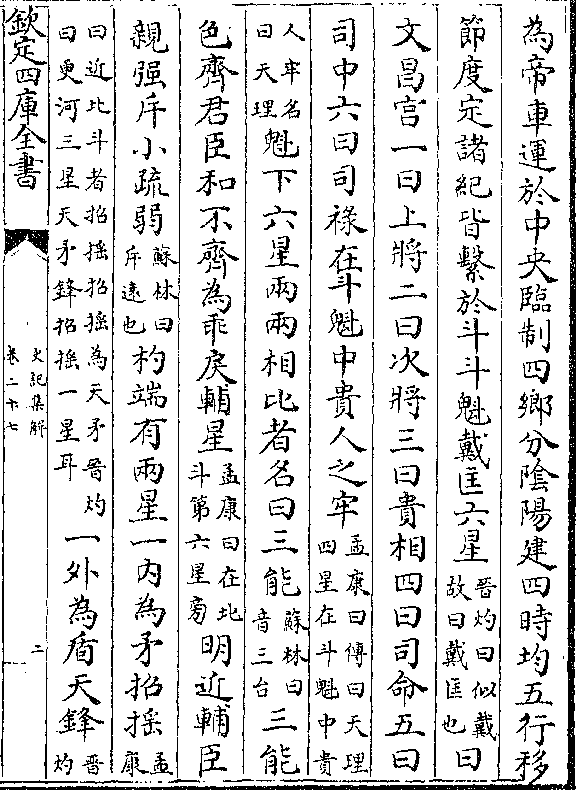 為帝車運於中央臨制四鄉分陰陽建四時均五行移
節度定諸紀皆繫於斗斗魁戴匡六星晉灼曰似戴故曰戴匡也曰
文昌宫一曰上將二曰次將三曰貴相四曰司命五曰
司中六曰司祿在斗魁中貴人之牢孟康曰傳曰天理四星在斗魁中貴
人牢名曰天理魁下六星兩兩相比者名曰三能蘇林曰音三台三能
色齊君臣和不齊為乖戾輔星孟康曰在北斗第六星旁明近輔臣
親强斥小疏弱蘇林曰斥遠也杓端有兩星一内為矛招摇孟康
曰近北斗者招摇招摇為天矛晉灼曰更河三星天矛鋒招摇一星耳一外為盾天鋒晉灼
欽定四庫全書
史記集解
卷二十七
二